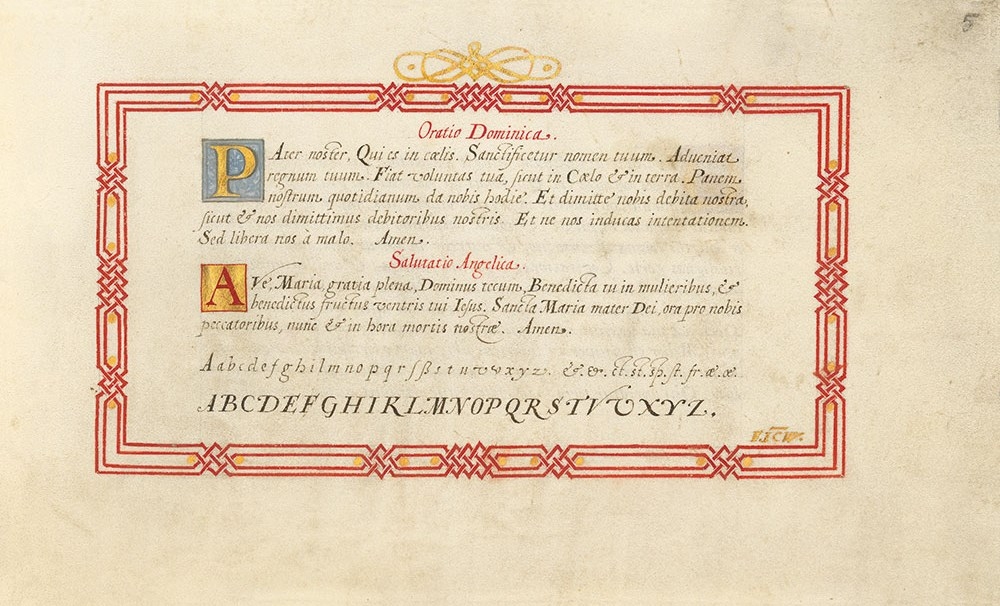 5
Oratio Dominica.
PAter noster, Qui es in cœlis. Sanctificetur nomen tuum. Adveniat
regnum tuum. Fiat voluntas tuã, sicut in Cœlo & in terra. Panem
nostrum quotidianum da nobis hodie. Et dimitte nobis debita nostra,
sicut & nos dimittimus debitoribus nostris. Et ne nos inducas intentationem.
Sed libera nos à malo. Amen.
Salutatio Angelica.
AVe, Maria, gratia plena, Dominus tecum, Benedicta tu in mulieribus, &
benedictus fructus ventris tui Iesus. Sancta Maria mater Dei, ora pro nobis
peccatoribus, nunc & in hora mortis nostræ. Amen.
A a b c d e f g h i l m n o p q r ſ ß s t u v v x y z. &. &. ct. st. sp. st. fr. æ. œ.
ABCDEFGHIKLMNOPQRSTVUXYZ.